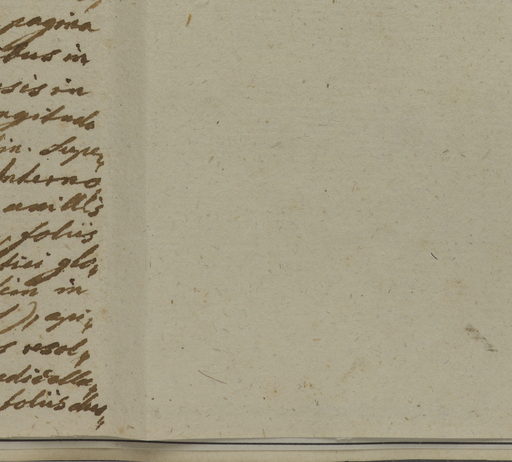 pagina
bus in
sis in
ngitudo
in. Supe,
Interno
axill's
foliis
tici glo,
in
), epi,
s resol,
edicella,
foliis du,